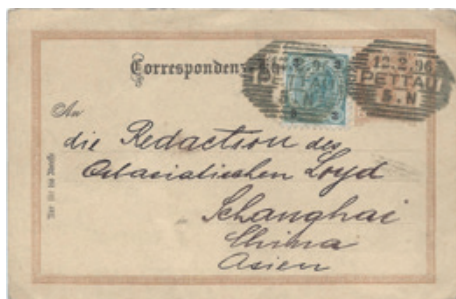 Correspondenz-
12.2.96
PETTAU
5.N
An
die Redaction des
Ostasiatischen Loyd
Schanghai
China
Asien